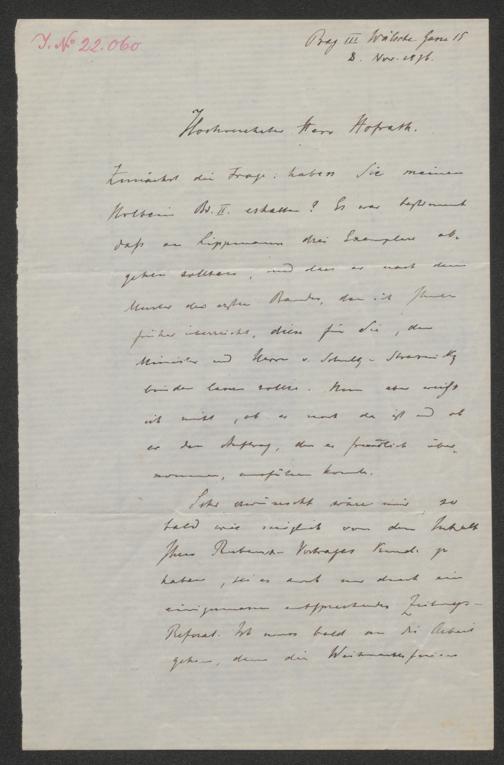 J. No 22.060
Prag III Wälsche Gasse 15
8. Nov. 1876.
Hochverehrter Herr Hofrath.
Zunächst die Frage: haben Sie meinen
Holbein Bd. II. erhalten? Es war bestimmt
daß an Lippmann drei Exemplare ab-
gehen sollten, und dass er nach dem
Muster des ersten Bandes, den ich Ihnen
früher überreicht, diese für Sie, den
Minister und Herrn v. Schultz-Strasznitzky
binden lassen sollte. Nun aber weiß
ich nicht, ob er noch da ist und ob
er den Auftrag, den er freundlich über-
nommen, ausführen konnte.
Sehr erwünscht wäre mir so
bald wie möglich von dem Inhalt
Ihres Rubens-Vortrages Kunde zu
haben, sei es auch nur durch ein
einigermaßen entsprechendes Zeitungs-
Referat. Ich muss bald an die Arbeit
gehen, denn die Weihnachtsferien